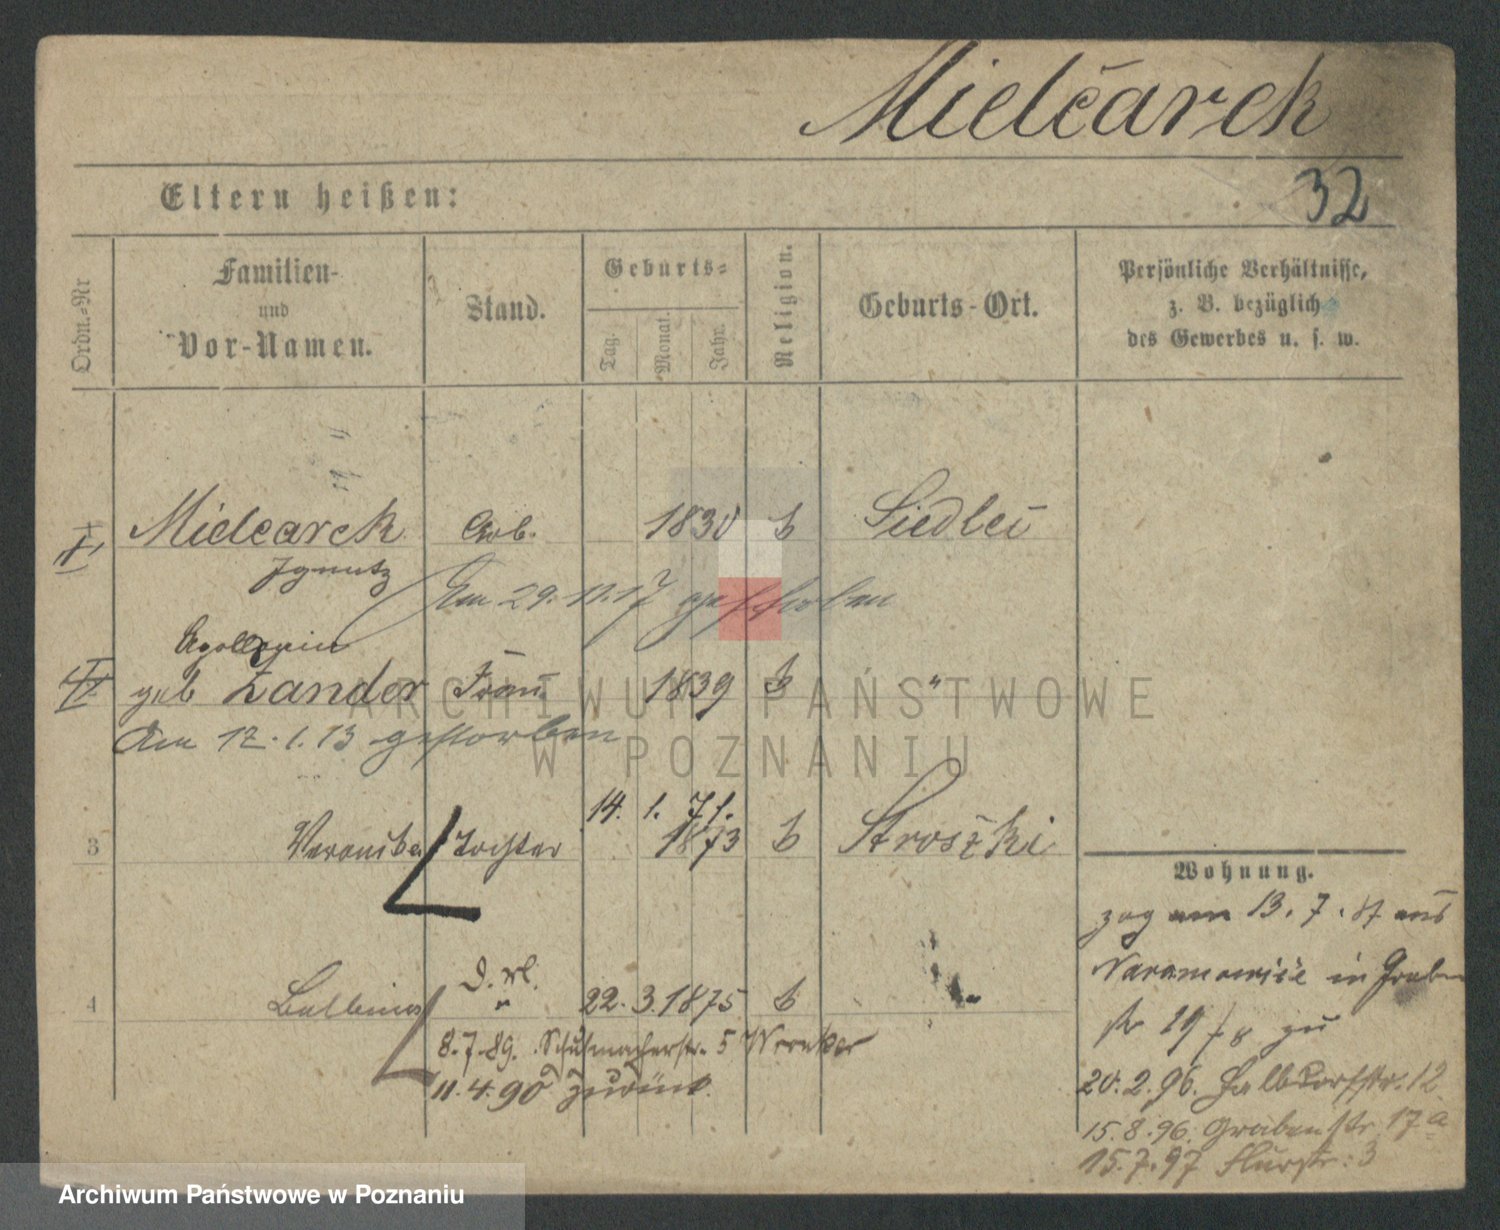 Mielcarek
32
Eltern heißen:
Ordn.-Nr
Familien-
und
Vor-Namen.
Stand.
Geburts-
Tag.
Monat.
Jahr.
Religion.
Geburts-Ort.
Persönliche Verhältnisse,
z. B. bezüglich
des Gewerbes u. s. w.
Mielcarek Arb. 1830 k Siedlec
Ignatz
Am 29. 11. 17 gestorben
Apollonia
geb Zander Frau 1839 k "
Am 12. 1. 13 gestorben
ARCHIWUM PAŃSTWOWE
W POZNANIU
14. 1. 71.
3 Veronika Tochter 1873 k Stroszki
D. M.
4 Balbina " 22. 3. 1875 k "
8.7.89. Schuhmacherstr. 5
11.4.90 zurück.
Wohnung.
zog am 13. 7. 87 aus
Naramowice in Graben
str 19/8 zu
20.2.96. Halbdorfstr. 12
15.8.96. Grabenstr. 17a
15.7.97 Flurstr. 3
Archiwum Państwowe w Poznaniu